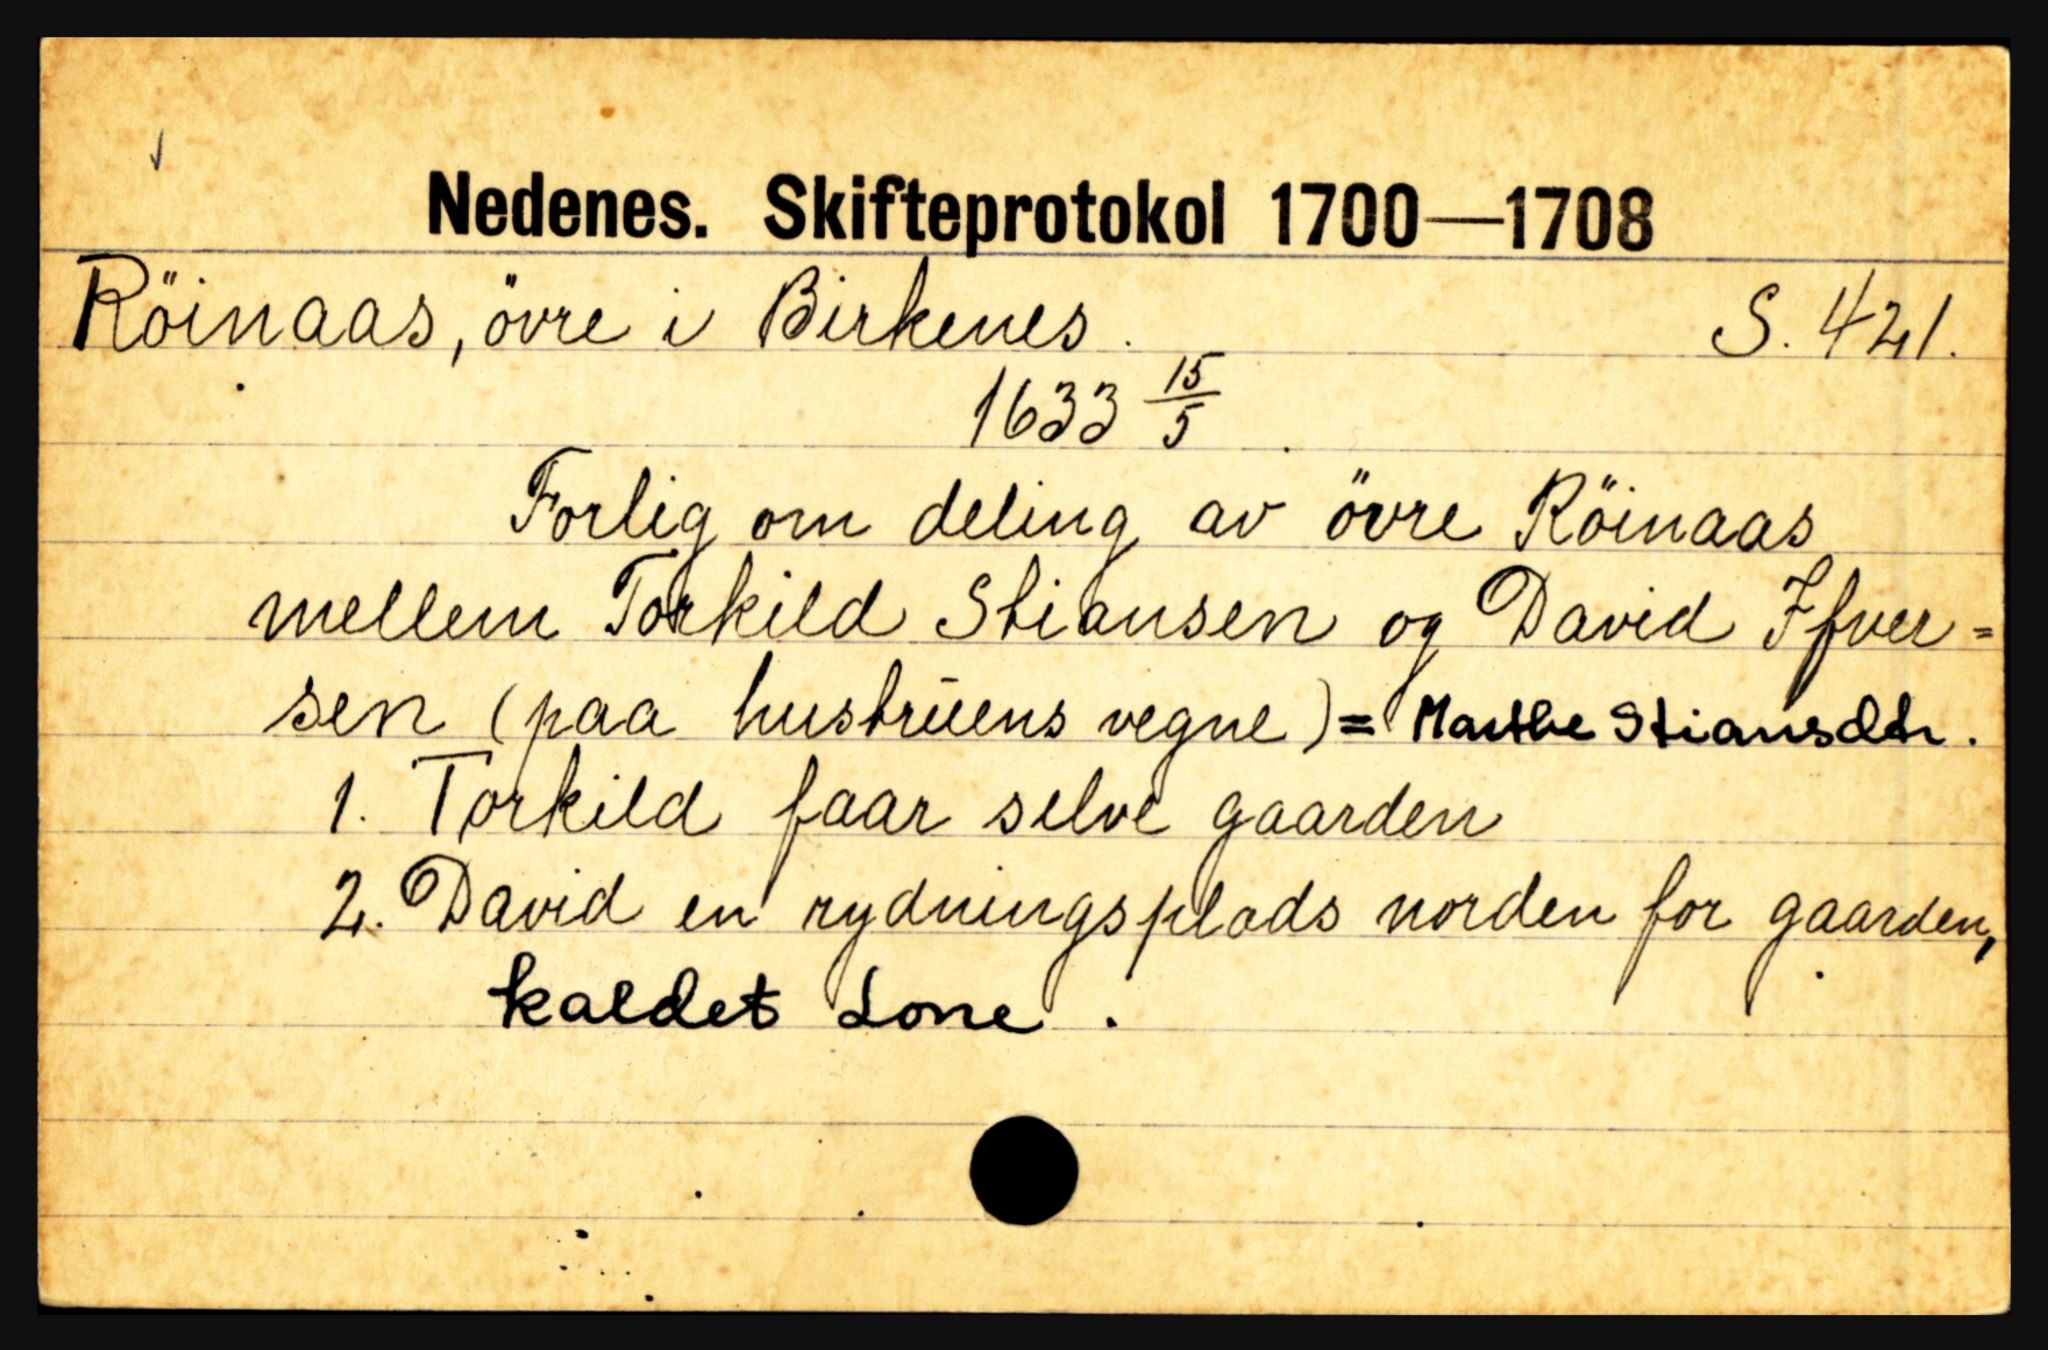 Nedenes. Skifteprotokol 1700—1708
Röinaas, övre i Birkenes. S. 421.
1633 15/5
Forlig om deling av övre Röinaas
mellem Torkild Stiansen og David Ifver=
sen (paa hustruens vegne) = Marthe Stiansdtr.
1. Torkild faar selve gaarden
2. David en rydningsplads norden for gaarden,
kaldet Lone.